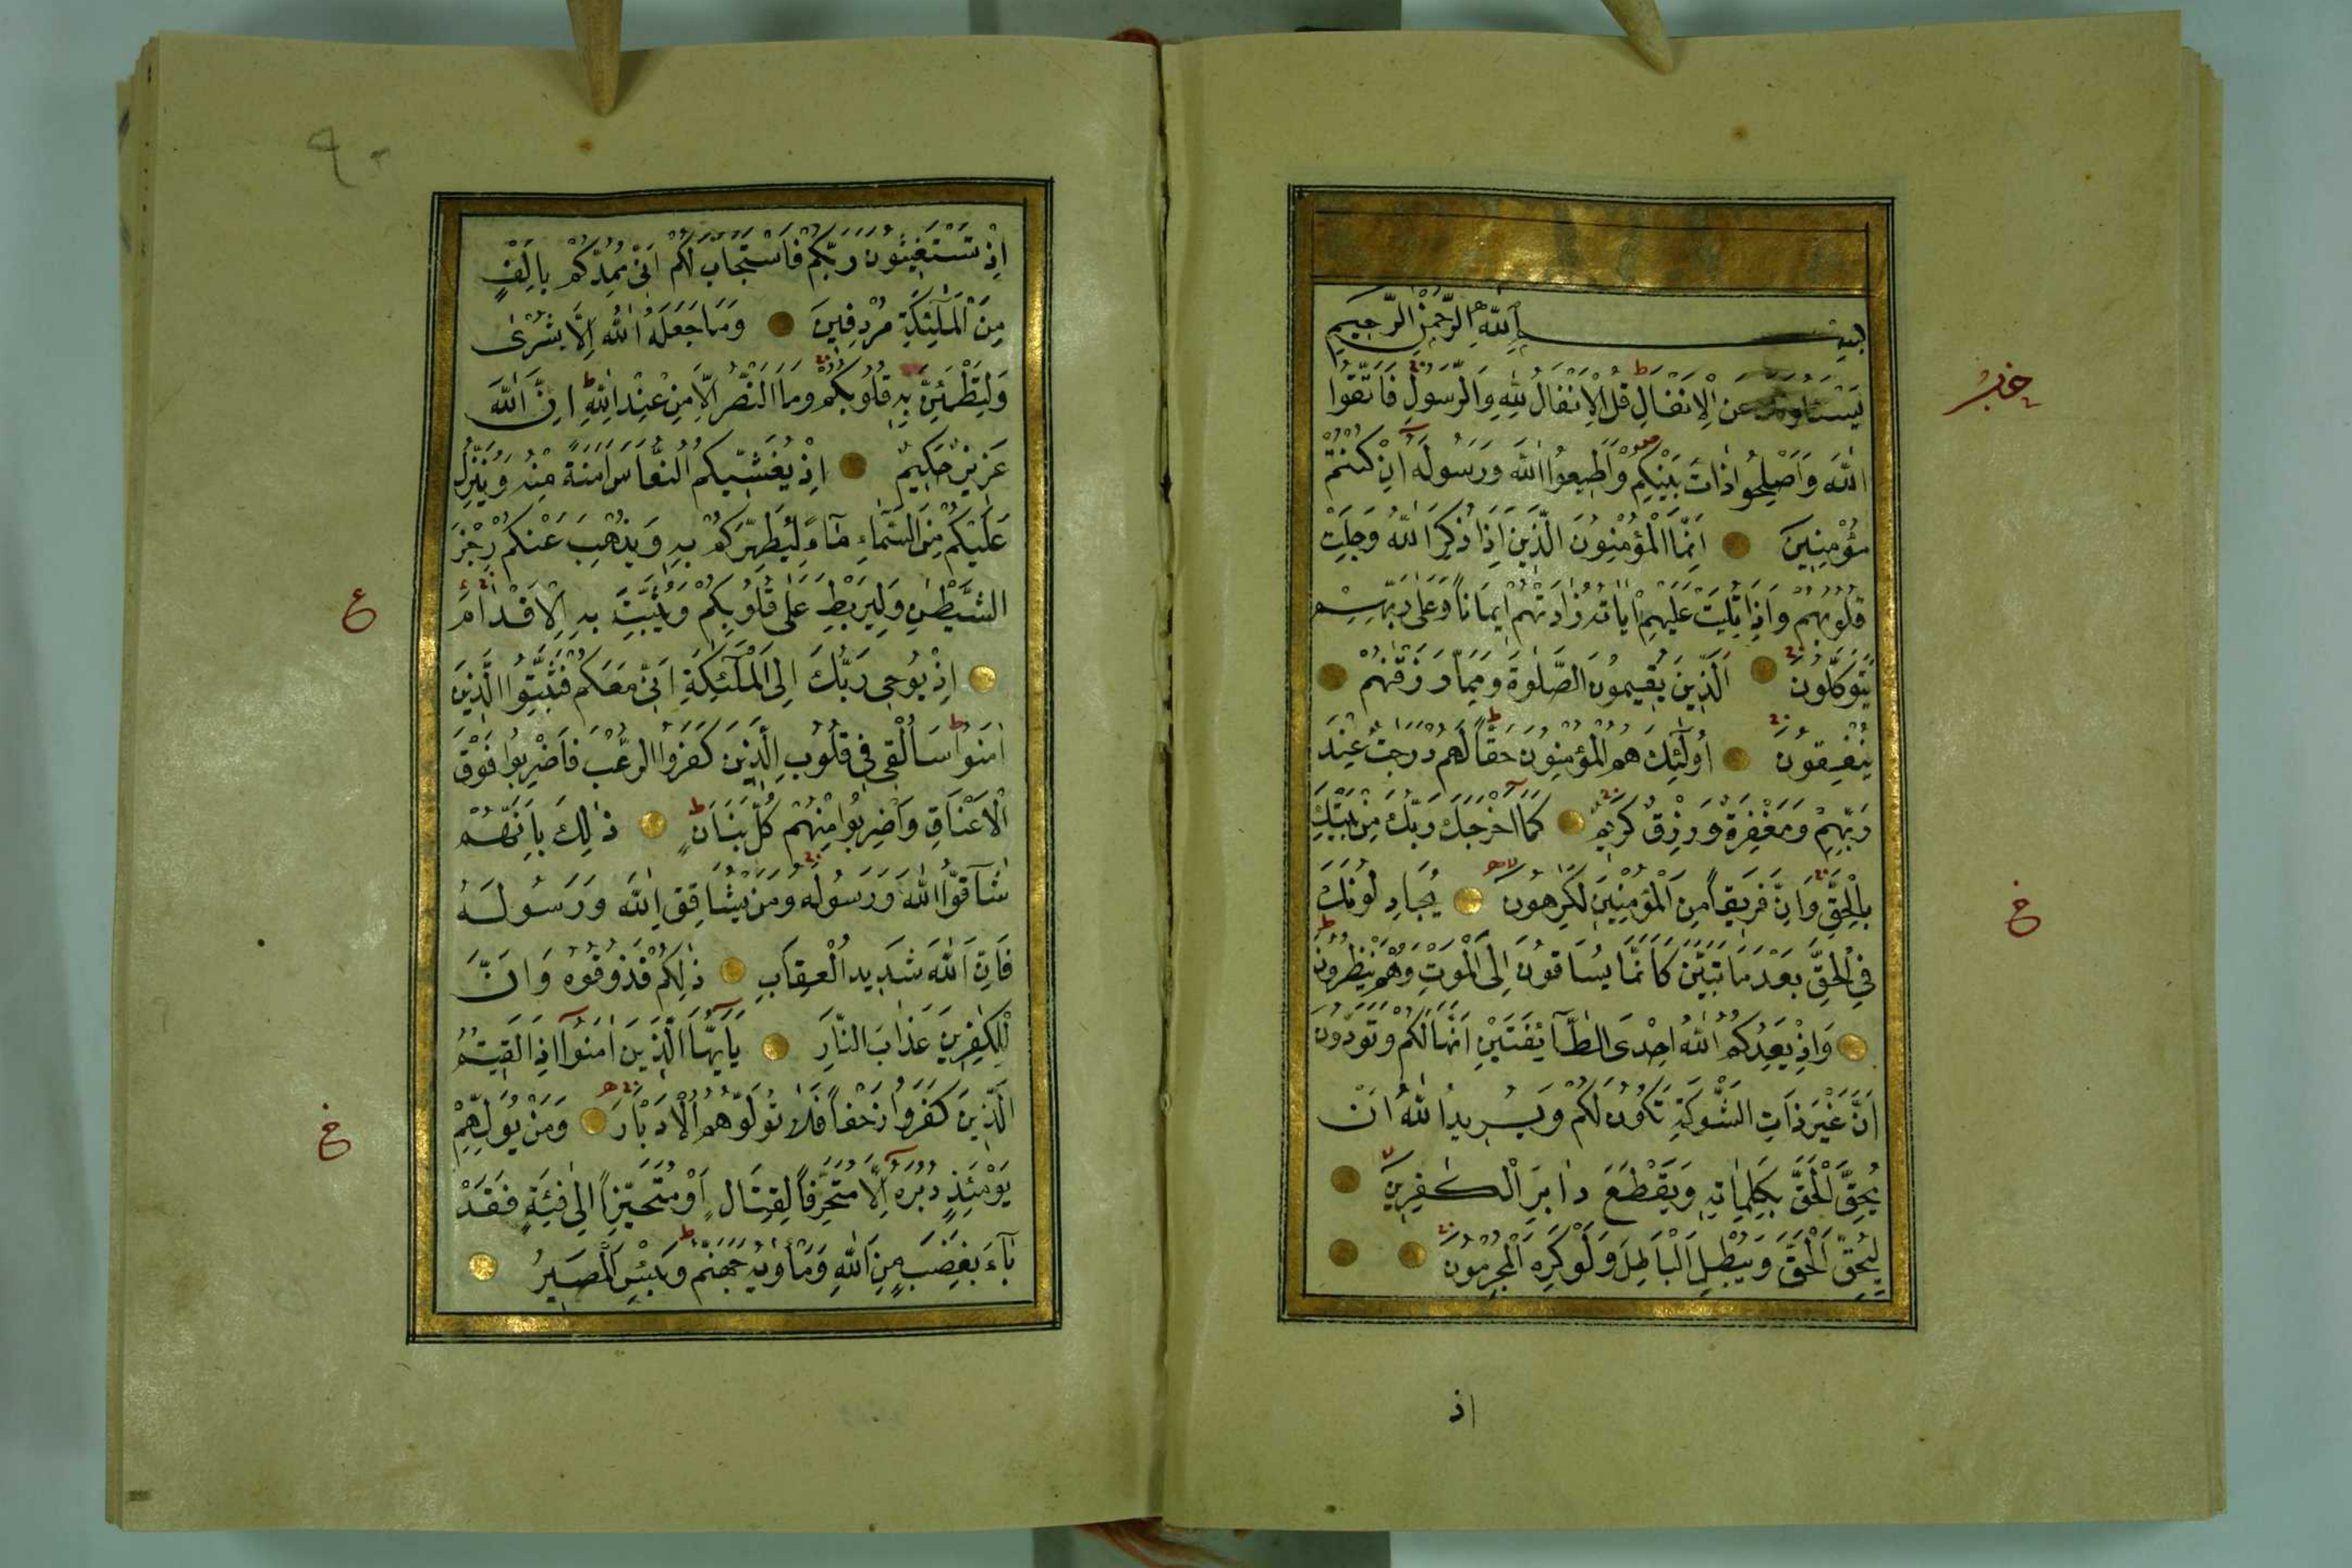 بِسْمِ اللّٰهِ الرَّحْمٰنِ الرَّحِيمِ
يَسْئَلُونَكَ عَنِ الْاَنْفَالِ قُلِ الْاَنْفَالُ لِلّٰهِ وَالرَّسُولِ فَاتَّقُوا
اللّٰهَ وَاَصْلِحُوا ذَاتَ بَيْنِكُمْ وَاَطِيعُوا اللّٰهَ وَرَسُولَهُ اِنْ كُنْتُمْ
مُؤْمِنِينَ اِنَّمَا الْمُؤْمِنُونَ الَّذِينَ اِذَا ذُكِرَ اللّٰهُ وَجِلَتْ
قُلُوبُهُمْ وَاِذَا تُلِيَتْ عَلَيْهِمْ اٰيَاتُهُ زَادَتْهُمْ اِيمَانًا وَعَلٰى رَبِّهِمْ
يَتَوَكَّلُونَ اَلَّذِينَ يُقِيمُونَ الصَّلٰوةَ وَمِمَّا رَزَقْنٰهُمْ
يُنْفِقُونَ اُولٰٓئِكَ هُمُ الْمُؤْمِنُونَ حَقًّا لَهُمْ دَرَجٰتٌ عِنْدَ
رَبِّهِمْ وَمَغْفِرَةٌ وَرِزْقٌ كَرِيمٌ كَمَا اَخْرَجَكَ رَبُّكَ مِنْ بَيْتِكَ
بِالْحَقِّ وَاِنَّ فَرِيقًا مِنَ الْمُؤْمِنِينَ لَكٰرِهُونَ يُجَادِلُونَكَ
فِي الْحَقِّ بَعْدَ مَا تَبَيَّنَ كَاَنَّمَا يُسَاقُونَ اِلَى الْمَوْتِ وَهُمْ يَنْظُرُونَ
وَاِذْ يَعِدُكُمُ اللّٰهُ اِحْدَى الطَّٓائِفَتَيْنِ اَنَّهَا لَكُمْ وَتَوَدُّونَ
اَنَّ غَيْرَ ذَاتِ الشَّوْكَةِ تَكُونُ لَكُمْ وَيُرِيدُ اللّٰهُ اَنْ
يُحِقَّ الْحَقَّ بِكَلِمَاتِهِ وَيَقْطَعَ دَابِرَ الْكٰفِرِينَ
لِيُحِقَّ الْحَقَّ وَيُبْطِلَ الْبَاطِلَ وَلَوْ كَرِهَ الْمُجْرِمُونَ
خ
اذ
٩٠
اِذْ تَسْتَغِيثُونَ رَبَّكُمْ فَاسْتَجَابَ لَكُمْ اَنِّى مُمِدُّكُمْ بِاَلْفٍ
مِنَ الْمَلٰٓئِكَةِ مُرْدِفِينَ وَمَا جَعَلَهُ اللّٰهُ اِلَّا بُشْرٰى
وَلِتَطْمَئِنَّ بِهِ قُلُوبُكُمْ وَمَا النَّصْرُ اِلَّا مِنْ عِنْدِ اللّٰهِ اِنَّ اللّٰهَ
عَزِيزٌ حَكِيمٌ اِذْ يُغَشِّيكُمُ النُّعَاسَ اَمَنَةً مِنْهُ وَيُنَزِّلُ
عَلَيْكُمْ مِنَ السَّمَٓاءِ مَٓاءً لِيُطَهِّرَكُمْ بِهِ وَيُذْهِبَ عَنْكُمْ رِجْزَ
الشَّيْطٰنِ وَلِيَرْبِطَ عَلٰى قُلُوبِكُمْ وَيُثَبِّتَ بِهِ الْاَقْدَامَ
اِذْ يُوحِى رَبُّكَ اِلَى الْمَلٰٓئِكَةِ اَنِّى مَعَكُمْ فَثَبِّتُوا الَّذِينَ
اٰمَنُوا سَاُلْقِى فِى قُلُوبِ الَّذِينَ كَفَرُوا الرُّعْبَ فَاضْرِبُوا فَوْقَ
الْاَعْنَاقِ وَاضْرِبُوا مِنْهُمْ كُلَّ بَنَانٍ ذٰلِكَ بِاَنَّهُمْ
شَٓاقُّوا اللّٰهَ وَرَسُولَهُ وَمَنْ يُشَاقِقِ اللّٰهَ وَرَسُولَهُ
فَاِنَّ اللّٰهَ شَدِيدُ الْعِقَابِ ذٰلِكُمْ فَذُوقُوهُ وَاَنَّ
لِلْكٰفِرِينَ عَذَابَ النَّارِ يَٓا اَيُّهَا الَّذِينَ اٰمَنُوا اِذَا لَقِيتُمُ
الَّذِينَ كَفَرُوا زَحْفًا فَلَا تُوَلُّوهُمُ الْاَدْبَارَ وَمَنْ يُوَلِّهِمْ
يَوْمَئِذٍ دُبُرَهُ اِلَّا مُتَحَرِّفًا لِقِتَالٍ اَوْ مُتَحَيِّزًا اِلٰى فِئَةٍ فَقَدْ
بَٓاءَ بِغَضَبٍ مِنَ اللّٰهِ وَمَاْوٰيهُ جَهَنَّمُ وَبِئْسَ الْمَصِيرُ
ع
خ